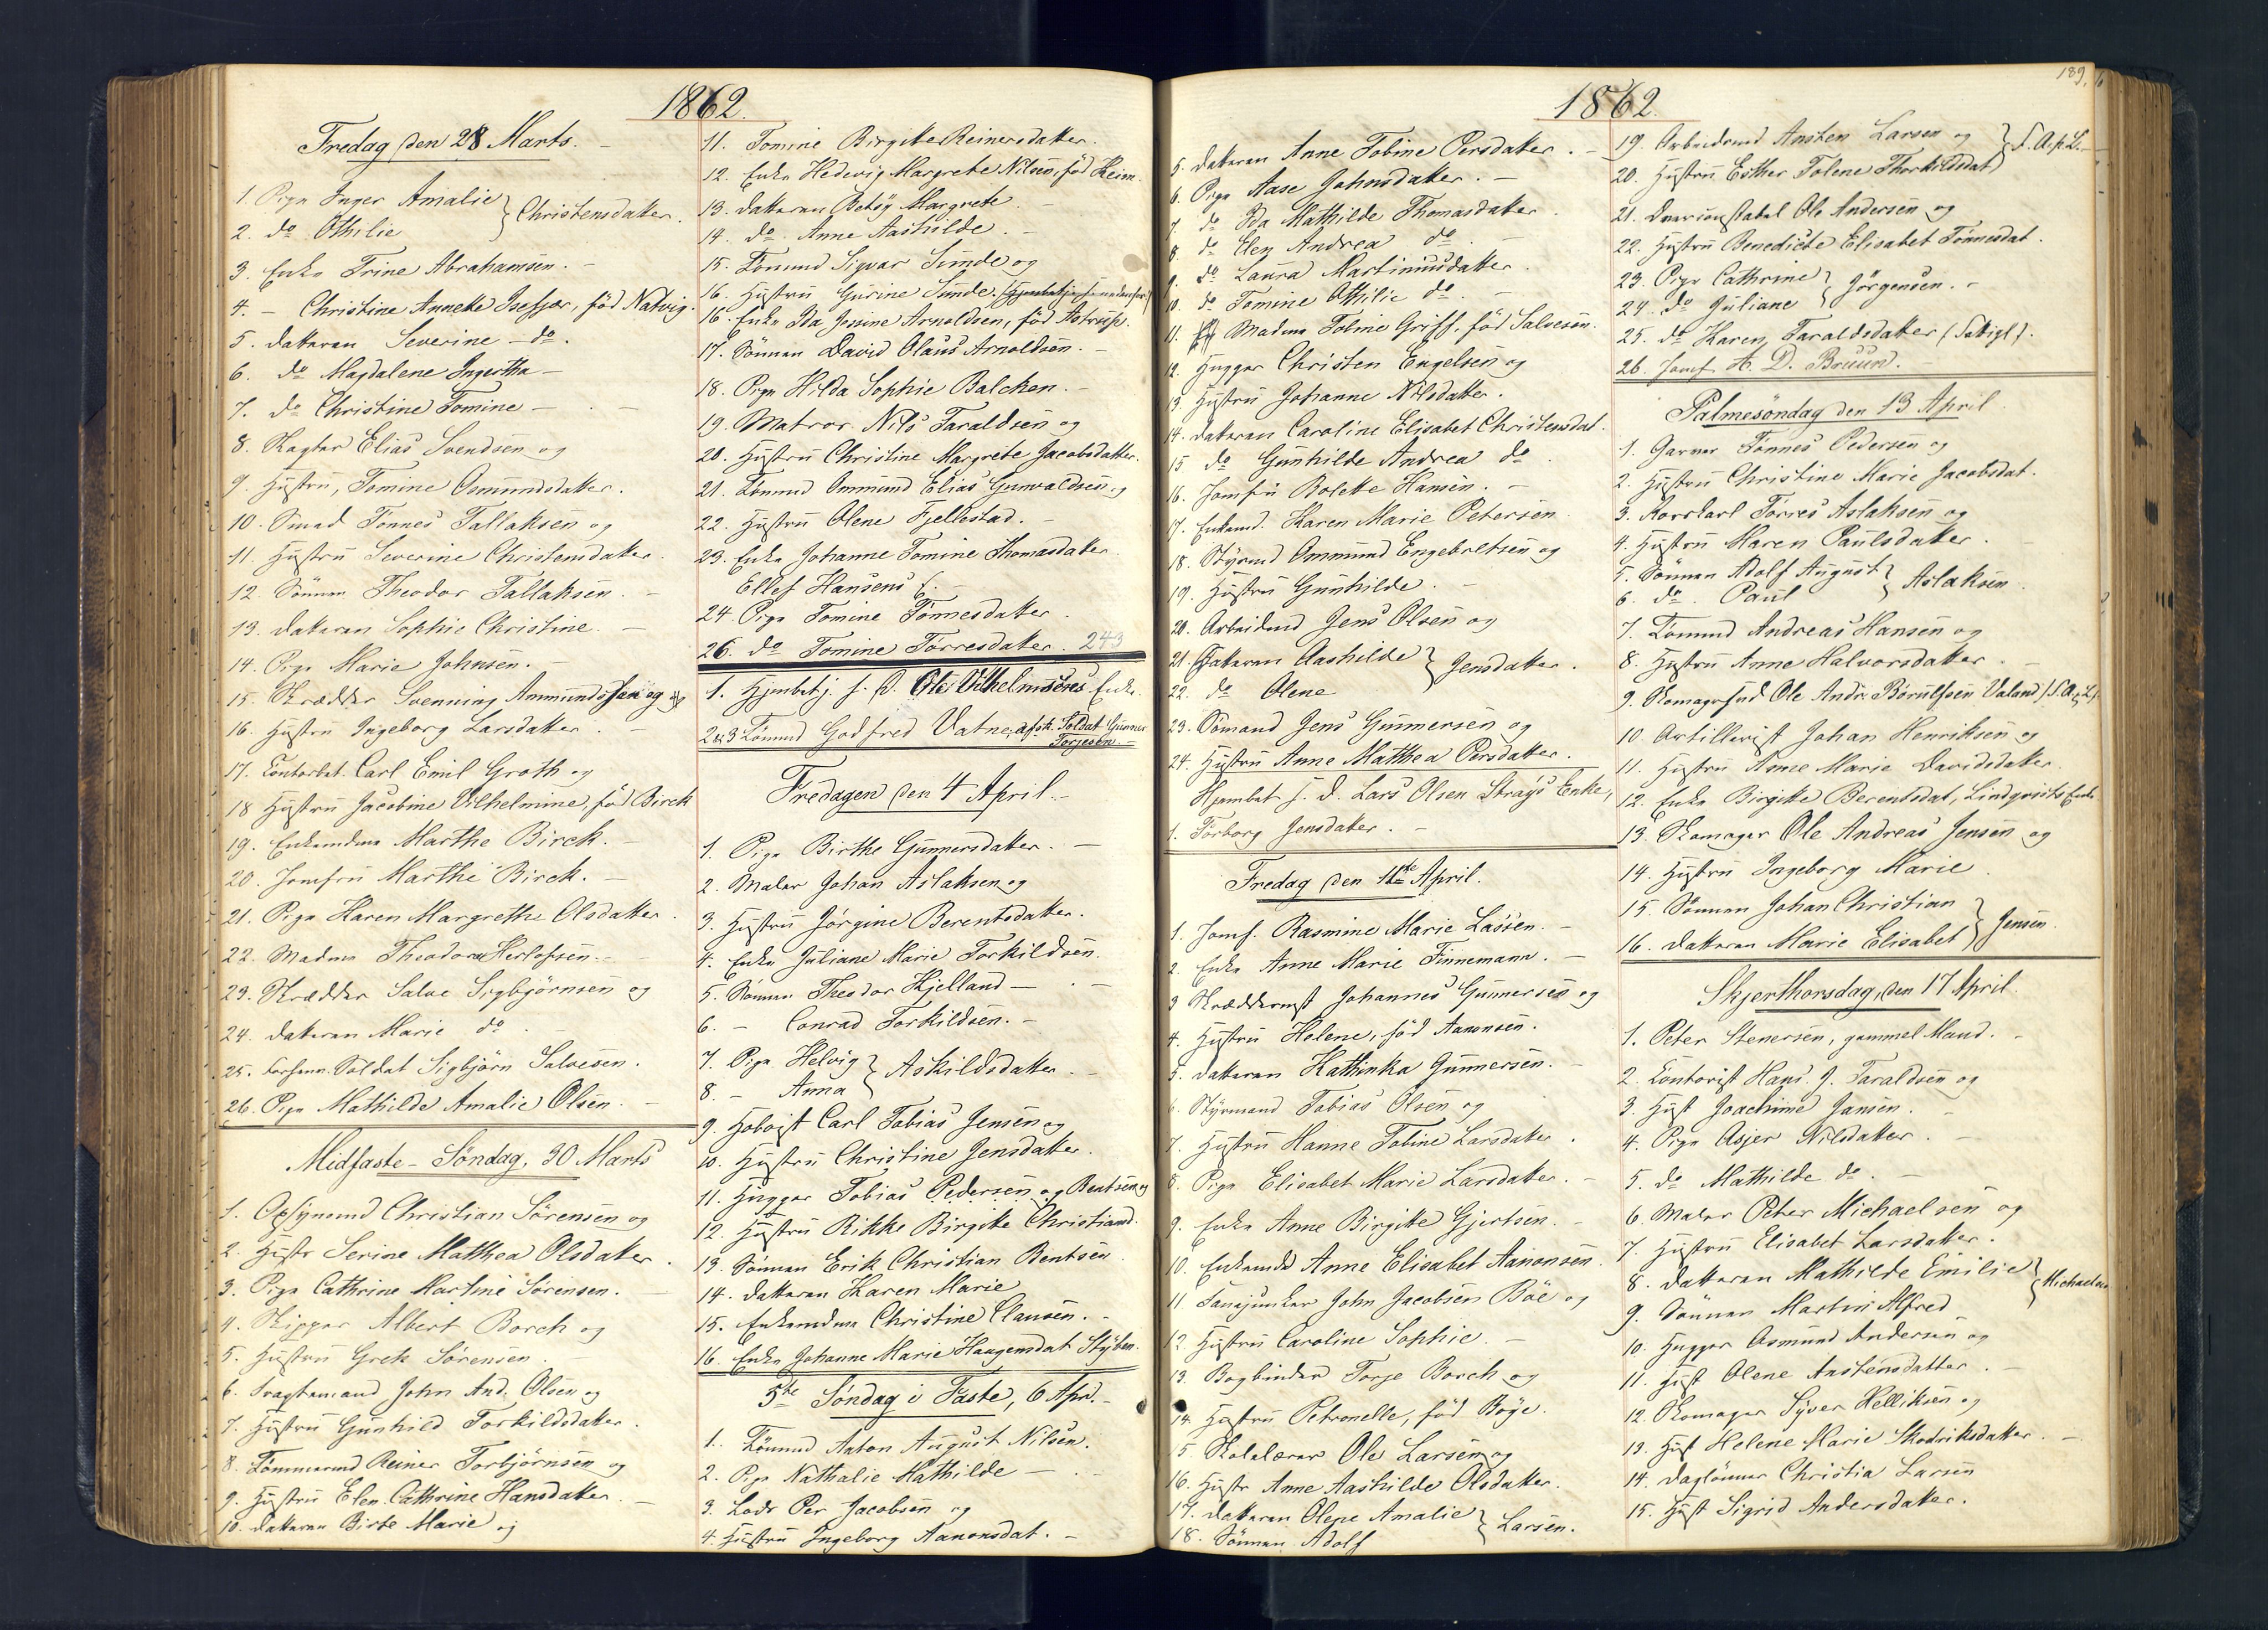 1862.
Fredag den 28 Marts.
1. Pige Inger Amalie } Christensdatter.
2. do Othilie
3. Enke Trine Abrahamsen. -
4. - Christine Anneke Isefjær, född Natvig.
5. datteren Severine - do.
6. do Magdalene Ingertha -
7. do Christine Tomine -
8. Elias Svendsen og
9. Hustru, Tomine Osmundsdatter.
10. Smed Tönnes Tallaksen og
11. Hustru Severine Christensdatter.
12. Sönnen Theodor Tallaksen. -
13. datteren Sophie Christine. -
14. Pige Marie Johnsen. -
15. Skrædder Svenning Ammundsen og
16. Hustru Ingeborg Larsdatter. -
17. Contorbet. Carl Emil Groth og
18 Hustru Jacobine Vilhelmine, född Birck
19. Enkemdme Marthe Birck. -
20. Jomfru Marthe Birck. -
21. Pige Karen Margrethe Olsdatter.
22. Madme Theodora Herlofsen. -
23. Skrædder Salve Sigbjörnsen og
24. datteren Marie do. -
25. Soldat Sigbjörn Salvesen.
26. Pige Mathilde Amalie Olsen. -
Midfaste-Söndag, 30 Marts
1. Opsynsmd Christian Sörensen og
2. Hustr Serine Matthea Olsdatter.
3. Pige Cathrine Martine Sörensen.
4. Skipper Albert Borch og
5. Hustru Grete Sörensen.
6. Fragtemand John And. Olsen og
7. Hustru Gunhild Torkildsdatter.
8. Tömmermd Reiner Torbjörnsen og
9. Hustru Elen Cathrine Hansdatter. -
10. datteren Birte Marie og
11. Tomine Birgitte Reinersdatter.
12. Enke Hedevig Margrete Nilsen, född Heim.
13. datteren Betsy Margrete. -
14. do. Anne Aashilde. -
15. Sömand Sigvar Sunde og
16. Hustru Gurine Sunde.
16. Enke Ida Jossine Arnoldsen, född Astrup.
17. Sönnen David Olaus Arnoldsen. -
18. Pige Hilda Sophie Balchen. -
19. Matros Nils Taraldsen og
20. Hustru Christine Margrete Jacobsdatter.
21. Sömand Ommund Elias Gunvaldsen og
22. Hustru Olene Fjellestad. -
23. Enke Johanne Tomine Thomasdatter
Ellef Hansens E. -
24. Pige Tomine Tönnesdatter.
26. do Tomine Torresdatter. 243
1. Hjmbetj. f. D. Ole Vilhelmsens Enke.
2&3 Sömand Godfred Vatne, afsk. Soldat Gunner
Torjesen. -
Fredagen den 4 April. -
1. Pige Birthe Gunnersdatter. -
2. Maler Johan Aslaksen og
3. Hustru Jörgine Berentsdatter.
4. Enke Juliane Marie Torkildsen.
5. Sönnen Theodor Kjelland -
6. - Conrad Torkildsen. -
7. Pige Helvig } Askildsdatter. -
8. - Anna
9. Hoboist Carl Tobias Jensen og
10. Hustru Christine Jensdatter.
11. Hugger Tobias Pedersen og Bentsen og
12. Hustru Rikke Birgitte Christiansd.
13. Sönnen Erik Christian Bentsen
14. datteren Karen Marie
15. Enkemdme Christine Clausen. -
16. Enke Johanne Marie Haagensdat
5te Söndag i Faste, 6 Apr. -
1. Sömand Anton August Nilsen.
2. Pige Nathalie Mathilde -
3. Lods Per Jacobsen og
4. Hustru Ingeborg Aanonsdat. -
1862.
189.
5. datteren Anne Tobine Persdatter. -
6. Pige Aase Johnsdatter. -
7. do Ida Mathilde Thomasdatter.
8. do Elen Andrea do. -
9. do Laura Martiniusdatter.
10. do Tomine Othilie do. -
11. Madme Toline Griff, född Salvesen.
12. Hugger Christen Engelsen og
13. Hustru Johanne Nilsdatter.
14. datteren Caroline Elisabet Christensdat.
15 do Gunhilde Andrea do.
16. Jomfru Bolette Hansen. -
17. Enkemd. Karen Marie Petersen
18. Styrmd Ommund Engebretsen og
19. Hustru Gunhilde. -
20. Arbeidsmd Jens Olsen og
21. datteren Aashilde } Jensdatter.
22. do Olene
23. Sömand Jens Gunnersen og
24. Hustru Anne Matthea Persdatter.
Hjembet. f. D. Lars Olsen Strays Enke,
1. Torborg Jensdatter. -
Fredag den 11te April.
1. Jomf. Rasmine Marie Lassen. -
2. Enke Anne Marie Finnemann. -
3 Skræddermst Johannes Gunnersen og
4. Hustru Helene, född Aanonsen.
5. datteren Kathinka Gunnersen. -
6. Styrmand Tobias Olsen og
7. Hustru Hanne Tobine Larsdatter.
8. Pige Elisabet Marie Larsdatter. -
9. Enke Anne Birgitte Gjertsen. -
10. Enkemd Anne Elisabet Aanonsen.
11 Fanejunker John Jacobsen Böe og
12. Hustru Caroline Sophie. -
13. Bogbinder Torje Borch og
14. Hustru Petronelle, född Böye.
15. Skolelærer Ole Larsen og
16. Hustr Anne Aashilde Olsdatter.
17. datteren Olene Amalie } Larsen.
18. Sönnen Adolf
19. Arbeidsmd Ansten Larsen og } S. A. p. L. -
20. Hustru Esther Tolene Thorkildsdat
21. Ole Andersen og
22. Hustru Benedicte Elisabet Tönnesdat.
23. Pige Cathrine } Jörgensen. -
24. do Juliane
25. do Karen Taraldsdatter
26. Jomf. A. D. Bruun.
Palmesöndag den 13 April
1. Garver Tönnes Pedersen og
2. Hustru Christine Marie Jacobsdat.
3. Torres Aslaksen og
4. Hustru Maren Paulsdatter.
5. Sönnen Adolf August } Aslaksen.
6. do. Paul
7. Sömand Andreas Hansen og
8. Hustru Anne Halvorsdatter. -
9. Ole Andr. Börulfsen Valand
10. Artillerist Johan Henriksen og
11. Hustru Anne Marie Davidsdatter.
12. Enke Birgitte Berentsdat, Lindqvists Enke
13. Skomager Ole Andreas Jensen og
14. Hustru Ingeborg Marie
15. Sönnen Johan Christian } Jensen.
16. datteren Marie Elisabet
Skjerthorsdag, den 17 April.
1. Peter Stenersen, gammel Mand. -
2. Contorist Hans J. Taraldsen og
3. Hust Joachime Jansen. -
4. Pige Asjer Nilsdatter. -
5. do Mathilde do. -
6. Maler Peter Michaelsen og
7. Hustru Elisabet Larsdatter.
8. datteren Mathilde Emilie } Michaelsen
9. Sönnen Martin Alfred
10. Hugger Osmund Andersen og
11. Hust Olene Anstensdatter. -
12. Skomager Syver Helliksen og
13. Hust Helene Marie Skodriksdatter. -
14. Daglönner Christia Larsen
15. Hust Sigrid Andersdatter.